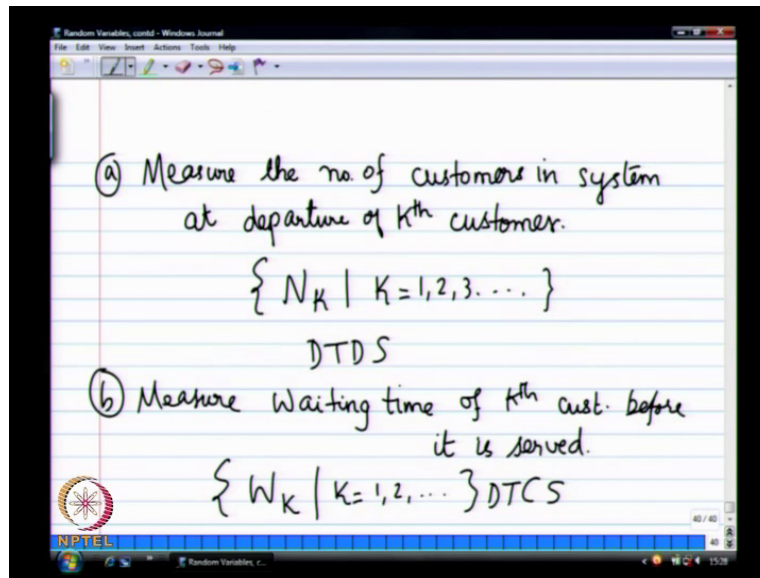 Random Variables, contd - Windows Journal
File Edit View Insert Actions Tools Help
(a) Measure the no. of customers in system
at departure of Kth customer.
{ NK | K = 1, 2, 3. ... }
DTDS
(b) Measure Waiting time of Kth cust. before
it is served.
{ WK | K = 1, 2, ... } DTCS
40 / 40
40
NPTEL
Random Variables, c...
15:28